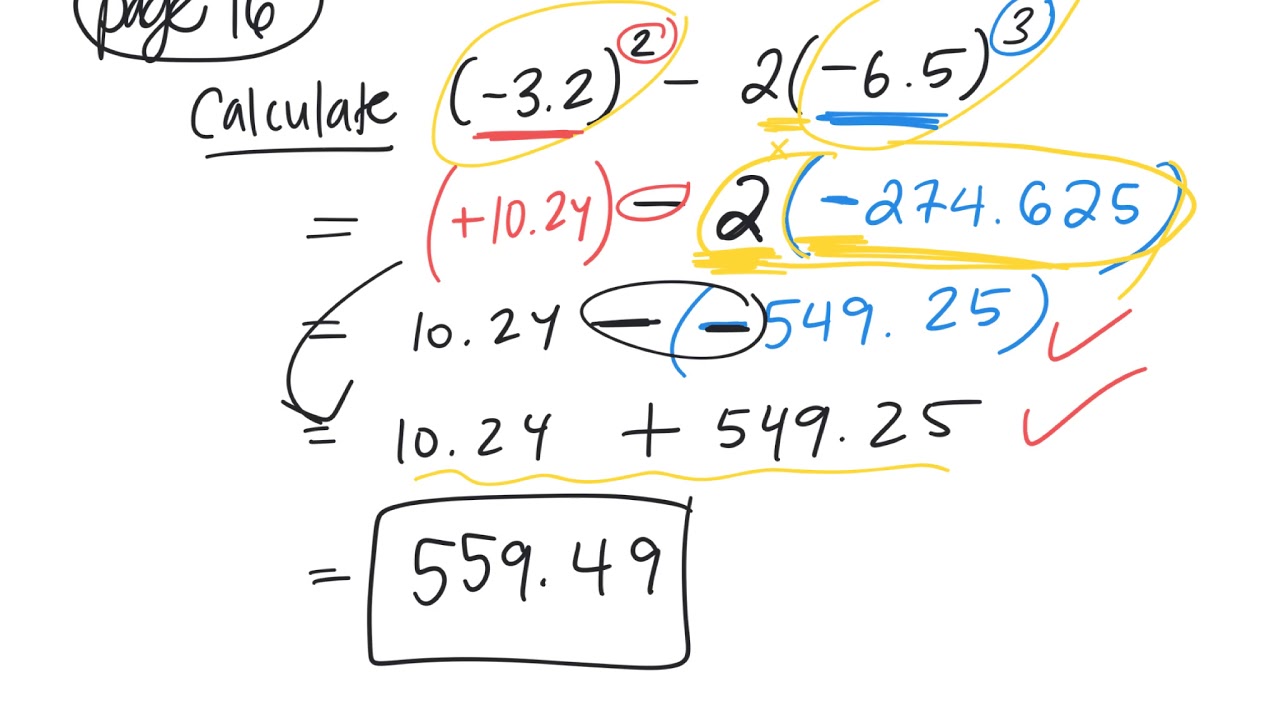 page 16
Calculate (-3.2)² - 2(-6.5)³
= (+10.24) - 2 (-274.625)
= 10.24 - (-549.25)
= 10.24 + 549.25
= 559.49